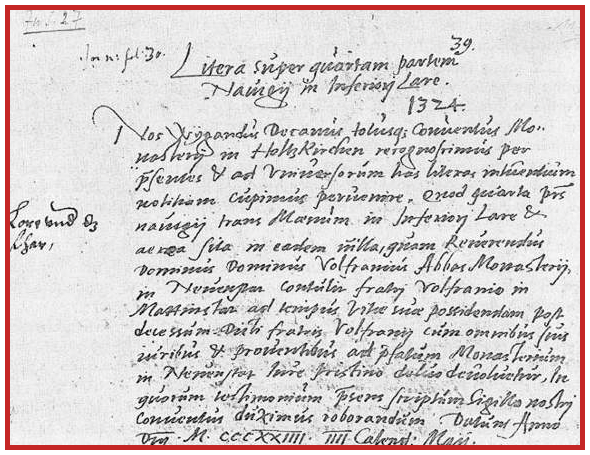 39.
Litera super quartam partem
Nauigij in Inferiorj Lare.
1324.
Nos Wygandus Decanus totusq; Conuentus Mo-
nasterij in Holtzkirchen recognoscimus per
pñtes & ad Vniuersorum has literas intuentium
notitiam cupimus peruenire, Quod quarta prs
nauigij trans Mœnum in Inferiorj Lare &
area sita in eadem uilla, quam Reuerendus
Dominus Dominus Volframius Abbas Monasterij,
in Neuenstat contulit fratrj Volframo in
Mattinstat ad tempus vitæ suæ possidendam post
decessum Dicti fratris Volframj cum omnibus suis
iuribus & prouentibus ad pfatum Monasterium
in Neuenstat iure pristino deuoluetur, In
quorum testimonium pñsens scriptum Sigillo nostrj
Conuentus duximus roborandum Datum Anno
Dnj. M. CCCXXIIII. IIII Calend: Maij.